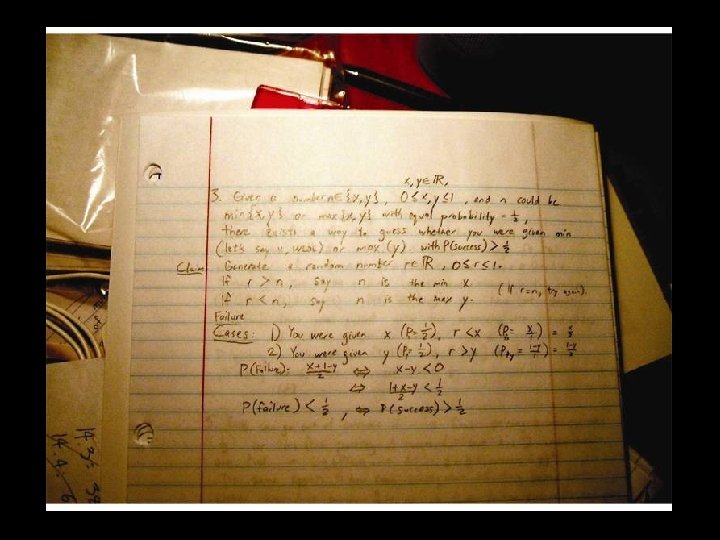 x, y ∈ ℝ,
3. Given a number n ∈ {x, y}, 0 ≤ x, y ≤ 1, and n could be
min{x, y} or max{x, y} with equal probability = 1/2,
there exists a way to guess whether you were given min
(let's say x, WLOG) or max (y) with P(success) > 1/2
Claim: Generate a random number r ∈ ℝ, 0 ≤ r ≤ 1.
If r > n, say n is the min x.
If r < n, say n is the max y. (If r = n, try again).
Failure
Cases: 1) You were given x (P = 1/2), r < x (P = x/1) = x/2
2) You were given y (P = 1/2), r > y (P = 1-y/1) = 1-y/2
P(failure) = x+1-y/2 ⇔ x-y < 0
⇔ 1+x-y/2 < 1/2
P(failure) < 1/2, ⇔ P(success) > 1/2